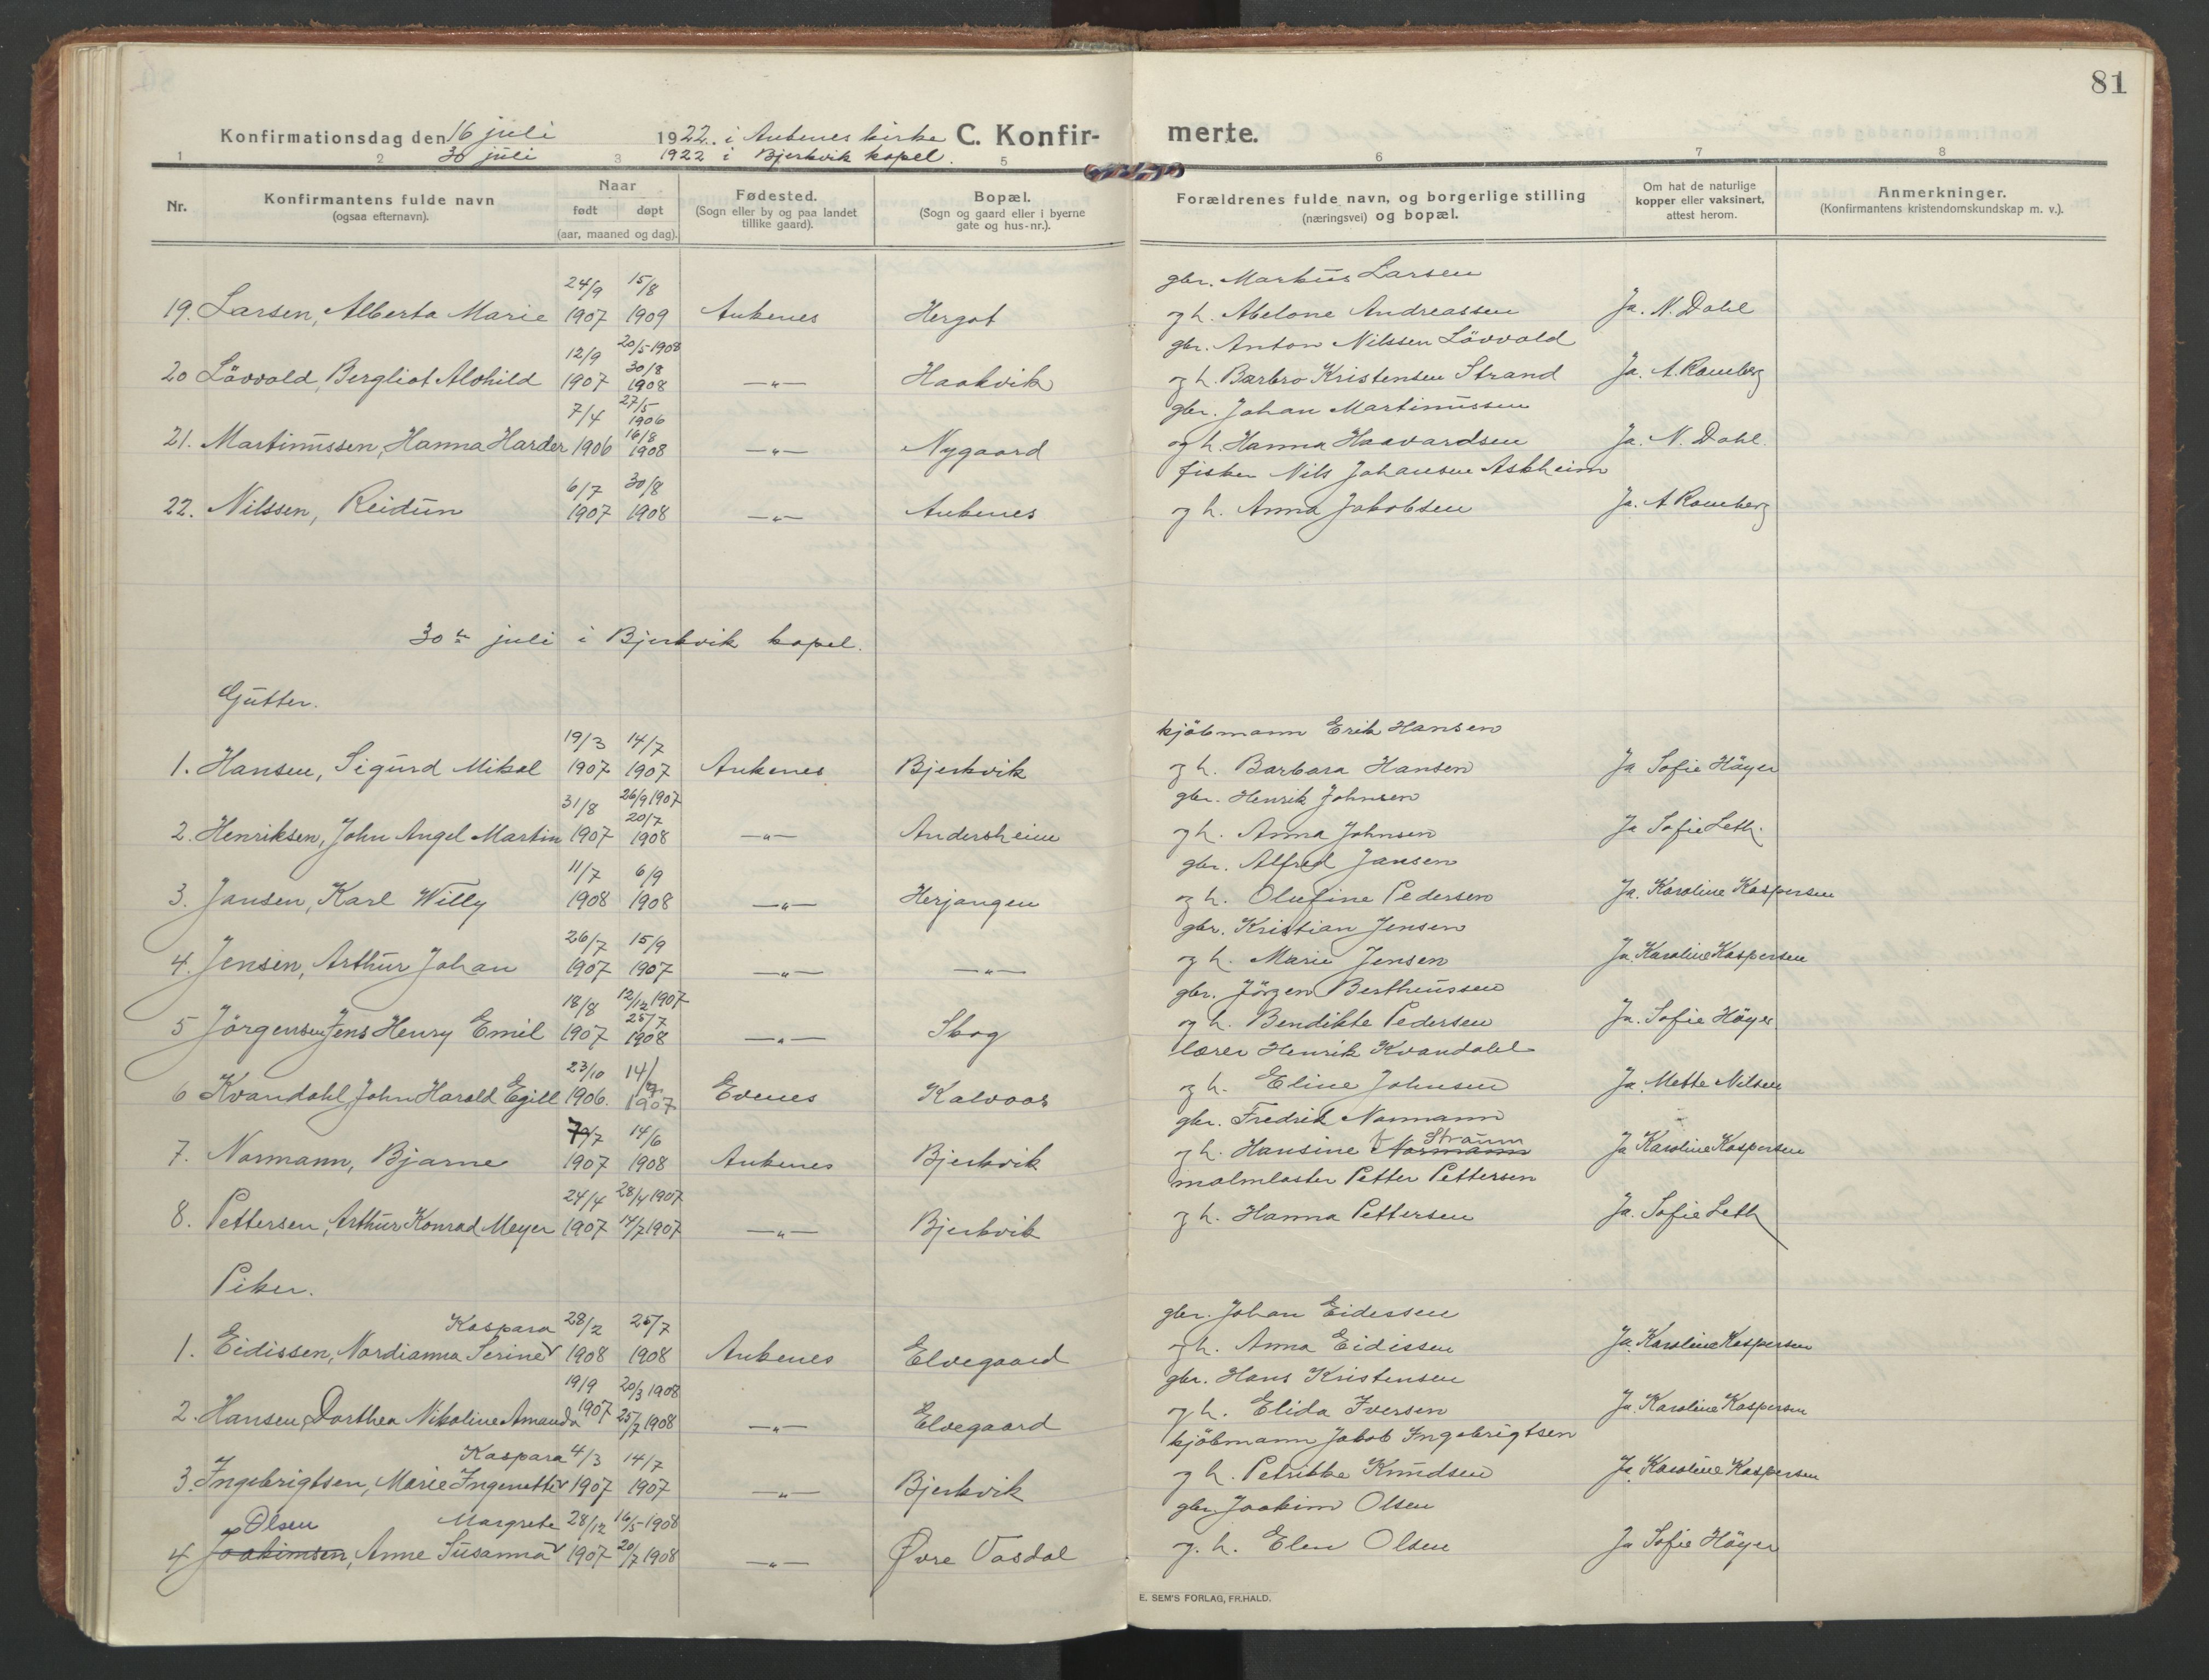 81
Konfirmationsdag den 16 juli 1922. i Ankenes kirke C. Konfirmerte.
30 juli 1922 i Bjerkvik kapel.
1 2 3 5 6 7 8
Nr. Konfirmantens fulde navn (ogsaa efternavn). Naar født døpt (aar, maaned og dag). Fødested. (Sogn eller by og paa landet tillike gaard). Bopæl. (Sogn og gaard eller i byerne gate og hus-nr.). Forældrenes fulde navn, og borgerlige stilling (næringsvei) og bopæl. Om hat de naturlige kopper eller vaksinert, attest herom. Anmerkninger. (Konfirmantens kristendomskundskap m. v.).
24/9 15/8 gbr. Markus Larsen
19. Larsen, Alberta Marie 1907 1909 Ankenes Hergot og h. Abelone Andreassen Ja. N. Dahl
12/9 20/5-1908 30/8 gbr. Anton Nilssen Lövvold
20 Lövvold, Bergliot Alvhild 1907 1908 —"— Haakvik og h. Barbro Kristensen Strand Ja. A. Romberg
7/4 27/5 1906 gbr. Johan Martinussen
21. Martinussen, Hanna Harder 1906 16/8 1908 —"— Nygaard og h. Hanna Haavardsen Ja. N. Dahl.
6/7 30/8 fisker Nils Johansen Askheim
22. Nilssen, Reidun 1907 1908 —"— Ankenes og h. Anna Jakobsen Ja. A Romberg
30te juli i Bjerkvik kapel.
Gutter.
19/3 14/7 kjöbmann Erik Hansen
1. Hansen, Sigurd Mikal 1907 1907 Ankenes Bjerkvik og h. Barbara Hansen Ja Sofie Höyer
31/8 26/9 1907 20/7 gbr. Henrik Johnsen
2. Henriksen, John Angel Martin 1907 1908 —"— Andersheim og h. Anna Johnsen Ja Sofie Leth.
11/7 6/9 gbr. Alfred Jansen
3. Jansen, Karl Willy 1908 1908 —"— Herjangen og h. Olufine Pedersen Ja. Karoline Kaspersen
26/7 15/9 gbr. Kristian Jensen
4. Jensen, Arthur Johan 1907 1907 —"— —"— og h. Marie Jensen Ja. Karoline Kaspersen
18/8 12/12 1907 25/7 gbr. Jörgen Bertheussen
5 Jörgensen, Jens Henry Emil 1907 1908 —"— Skog og h. Bendikte Pedersen Ja. Sofie Höyer
23/10 14/ lærer Henrik Kvandahl
6 Kvandahl, John Harald Egill 1906. 1907 Evenes Kalvaas og h. Eline Johnsen Ja. Mette Nilsen
/7 14/6 gbr. Fredrik Normann
7. Normann, Bjarne 1907 1908 Ankenes Bjerkvik og h. Hansine Normann Straum Ja Karoline Kaspersen
24/4 28/4 1907 malmlaster Petter Pettersen
8. Pettersen, Arthur Konrad Meyer 1907 14/7 1907 —"— Bjerkvik og h. Hanna Pettersen Ja. Sofie Leth
Piker.
Kaspara 28/2 25/7 gbr. Johan Eidessen
1. Eidissen, Nordianna Serine 1908 1908 Ankenes Elvegaard og h. Anna Eidissen Ja. Karoline Kaspersen
19/9 20/3 1908 gbr. Hans Kristensen
2. Hansen, Dorthea Nikoline Amanda 1907 25/7 1908 —"— Elvegaard og h. Elida Iversen Ja. Karoline Kaspersen
Kaspara 4/3 14/7 kjöbmann Jakob Ingebrigtsen
3. Ingebrigtsen, Marie Ingenette 1907 1907 —"— Bjerkvik og h. Petrikke Knudsen Ja. Karoline Kaspersen
Olsen Margrete 28/12 16/5-1908 gbr. Joakim Olsen
4 Joakimsen, Anne Susanna 1907 20/7 1908 —"— Øvre Vasdal og h. Elen Olsen Ja Sofie Höyer
E. SEM'S FORLAG, FR.HALD.